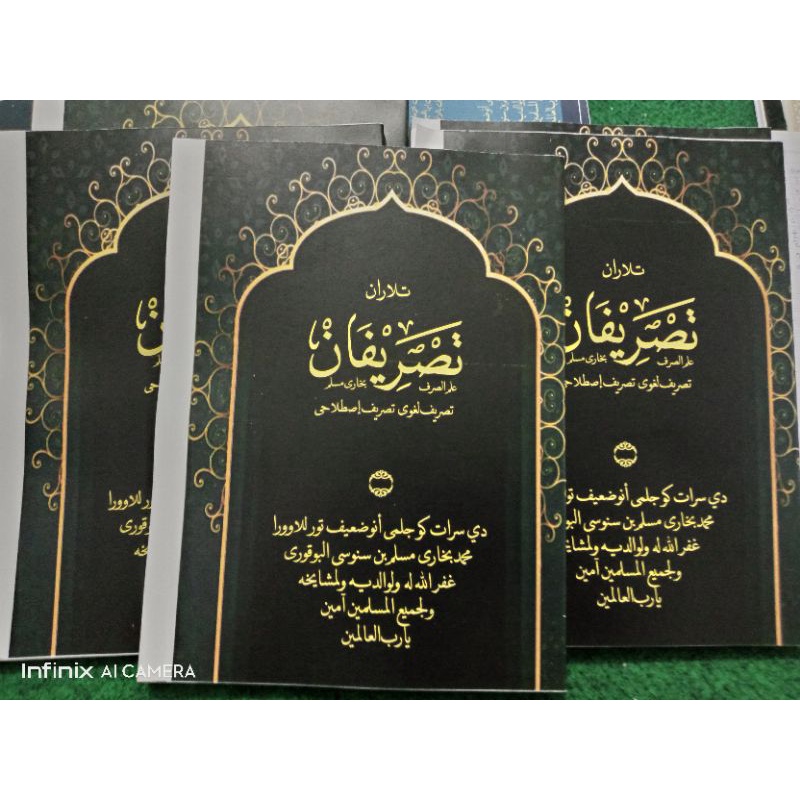 تلاران
تصريفان
علم الصرف بخاري مسلم
تصريف لغوى تصريف إصطلاحى
دي سرات كو جلمى أنو ضعيف تور للاوورا
محمد بخارى مسلم بن سنوسى البوقورى
غفر الله له ولوالديه ولمشايخه
ولجميع المسلمين آمين
يارب العالمين
تلاران
تصريفان
علم الصرف بخاري مسلم
تصريف لغوى تصريف إصطلاحى
دي سرات كو جلمى أنو ضعيف
محمد بخارى مسلم بن سنوسى
غفر الله له ولوالديه
ولجميع المسلمين آمين
يارب العالمين
Infinix AI CAMERA